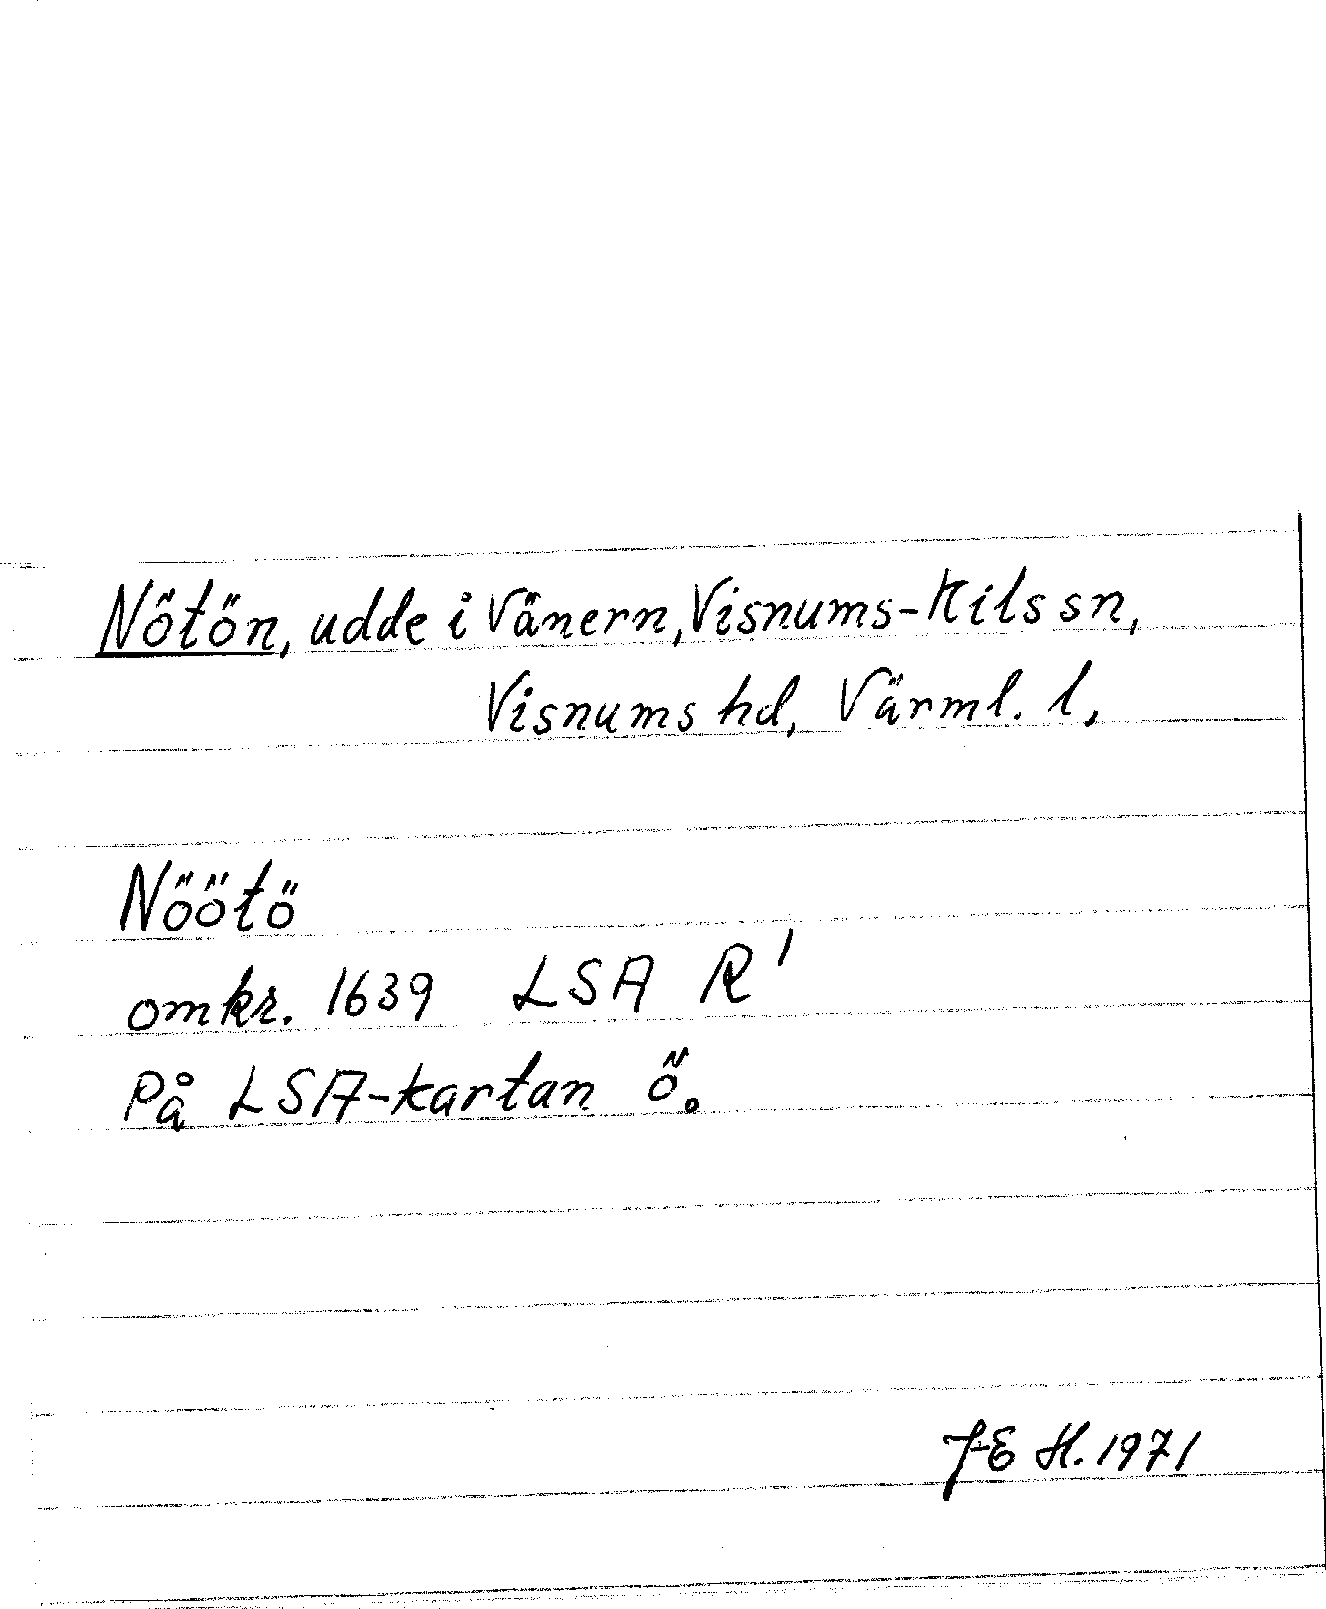 Nötön, udde i Vänern, Visnums-Kils sn,
Visnums hd, Värml. l,
Nöötö
omkr. 1639 LSA R'
På LSA-kartan ö.
JEH. 1971